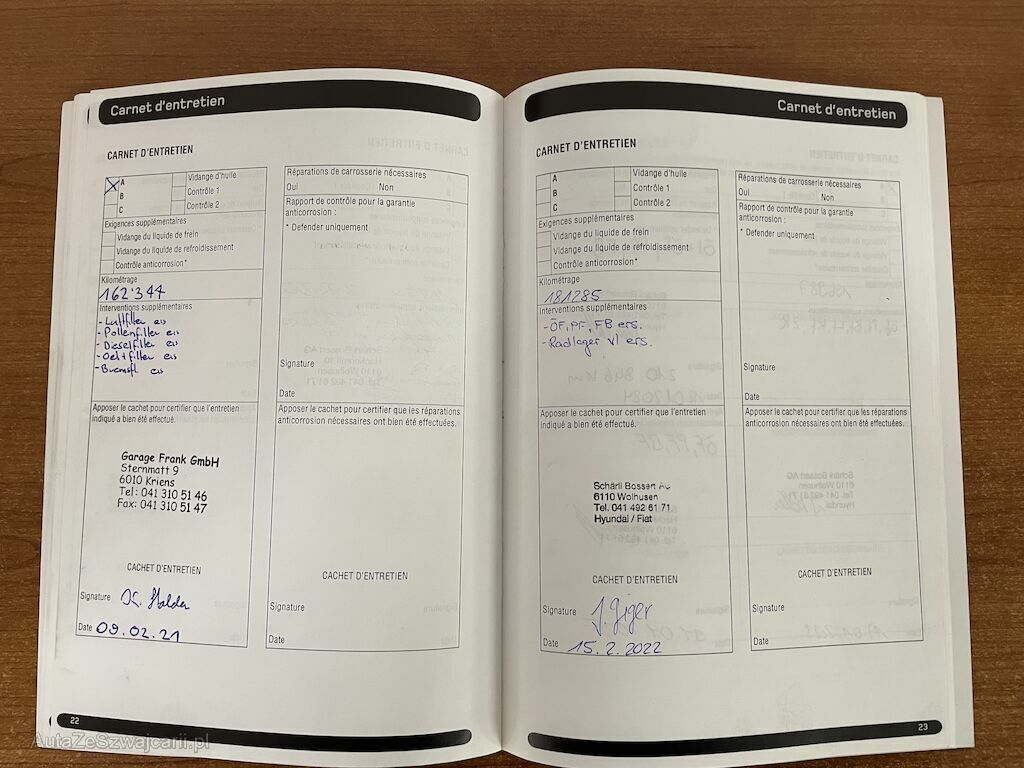 Carnet d'entretien
CARNET D'ENTRETIEN
A
B
C
Vidange d'huile
Contrôle 1
Contrôle 2
Exigences supplémentaires
Vidange du liquide de frein
Vidange du liquide de refroidissement
Contrôle anticorrosion*
Kilométrage
162'344
Interventions supplémentaires
- Luftfilter
- Pollenfilter
- Dieselfilter
- Oelfilter
- Bremsfl.
Apposer le cachet pour certifier que l'entretien
indiqué a bien été effectué.
Garage Frank GmbH
Sternmatt 9
6010 Kriens
Tel: 041 310 51 46
Fax: 041 310 51 47
CACHET D'ENTRETIEN
Signature
Date 09.02.21
Réparations de carrosserie nécessaires
Oui Non
Rapport de contrôle pour la garantie
anticorrosion :
* Defender uniquement
Signature
Date
Apposer le cachet pour certifier que les réparations
anticorrosion nécessaires ont bien été effectuées.
CACHET D'ENTRETIEN
Signature
Date
22
Carnet d'entretien
CARNET D'ENTRETIEN
A
B
C
Vidange d'huile
Contrôle 1
Contrôle 2
Exigences supplémentaires
Vidange du liquide de frein
Vidange du liquide de refroidissement
Contrôle anticorrosion*
Kilométrage
181285
Interventions supplémentaires
- ÖF, PF, FB ers.
- Radlager vl ers.
Apposer le cachet pour certifier que l'entretien
indiqué a bien été effectué.
Schärli Bossert AG
6110 Wolhusen
Tel. 041 492 61 71
Hyundai / Fiat
CACHET D'ENTRETIEN
Signature J. Giger
Date 15.2.2022
Réparations de carrosserie nécessaires
Oui Non
Rapport de contrôle pour la garantie
anticorrosion :
* Defender uniquement
Signature
Date
Apposer le cachet pour certifier que les réparations
anticorrosion nécessaires ont bien été effectuées.
CACHET D'ENTRETIEN
Signature
Date
23
AutaZeSzwajcarii.pl